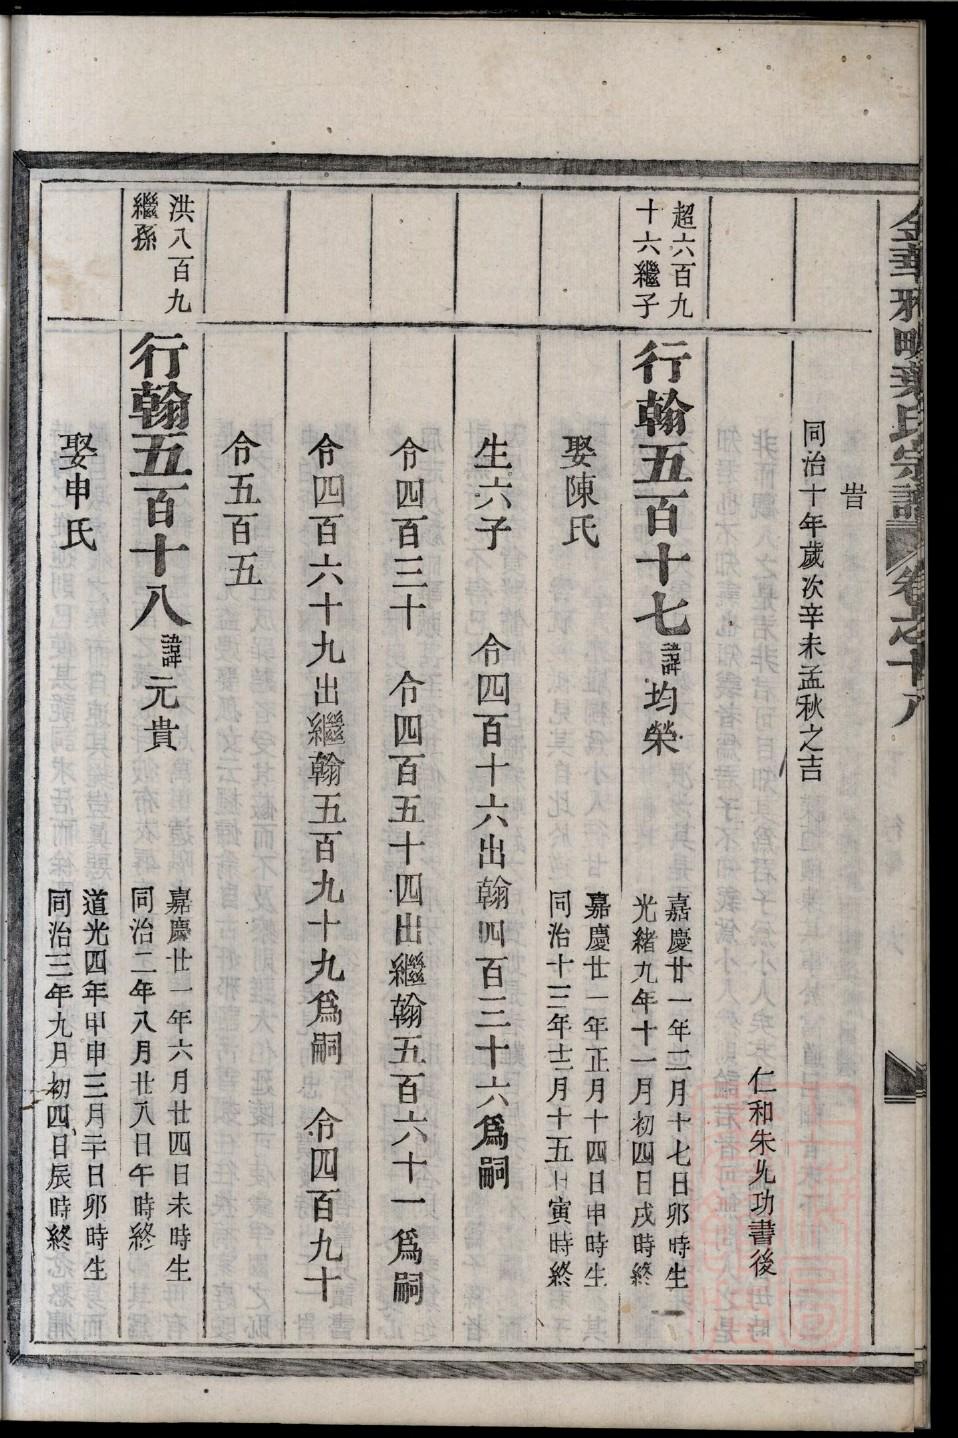 宗譜 卷之十八
昔
同治十年歲次辛未孟秋之吉
仁和朱九功書後
超六百九
十六繼子
行翰五百十七 諱均榮
嘉慶廿一年二月十七日卯時生
光緒九年十一月初四日戌時終
娶陳氏
嘉慶廿一年正月十四日申時生
同治十三年十二月十五日寅時終
生六子 令四百十六出翰四百三十六爲嗣
令四百三十 令四百五十四出繼翰五百六十一爲嗣
令四百六十九出繼翰五百九十九爲嗣 令四百九十
令五百五
洪八百九
繼孫
行翰五百十八 諱元貴
嘉慶廿一年六月廿四日未時生
同治二年八月廿八日午時終
娶申氏
道光四年甲申三月二十日卯時生
同治三年九月初四日辰時終